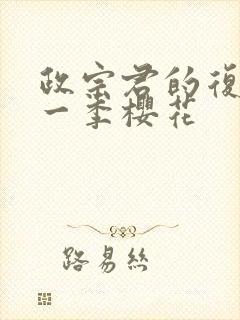 政宗君的復
一季櫻花
路易絲